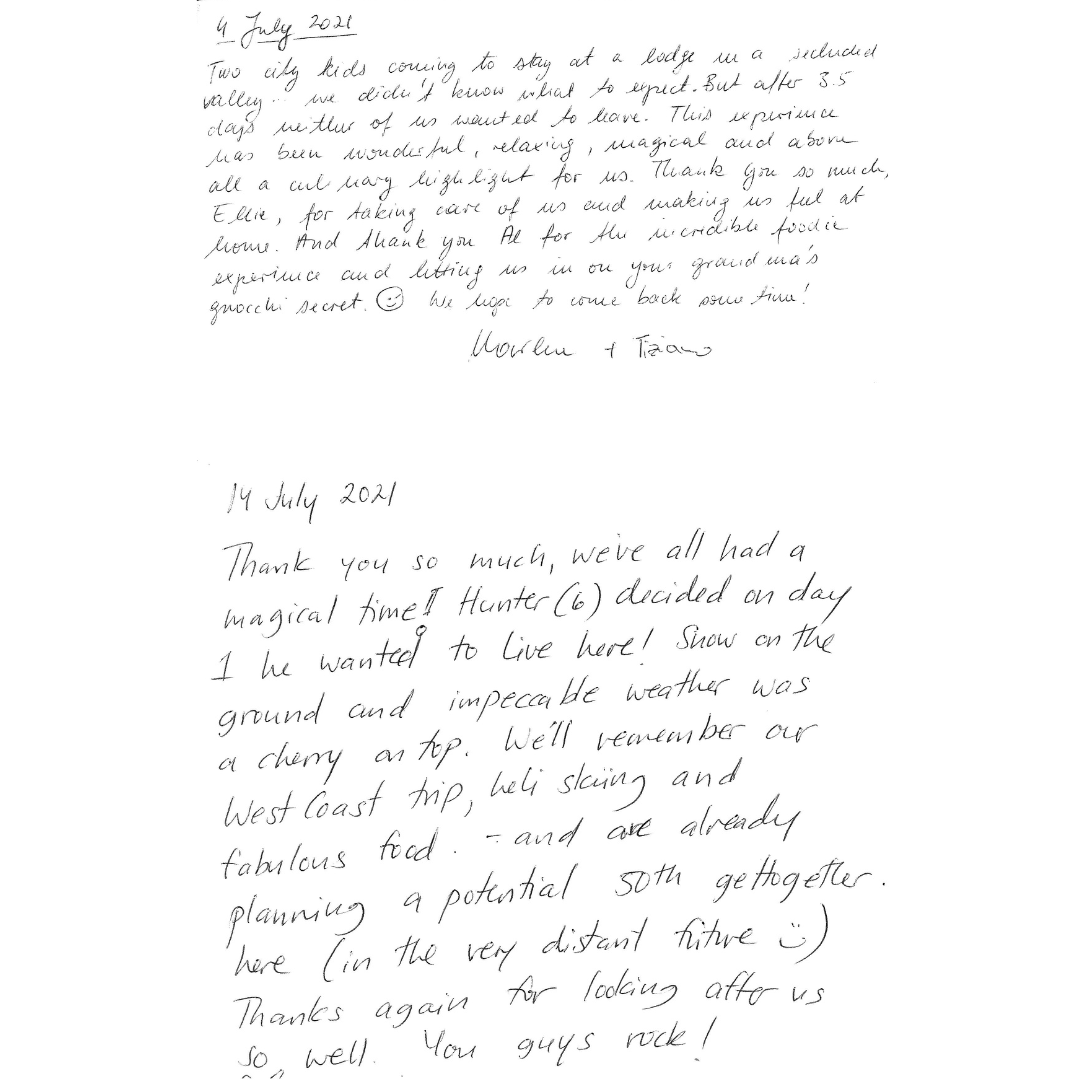 4 July 2021
Two city kids coming to stay at a lodge in a secluded
valley... we didn't know what to expect. But after 3.5
days neither of us wanted to leave. This experience
has been wonderful, relaxing, magical and above
all a culinary highlight for us. Thank you so much,
Ellie, for taking care of us and making us feel at
home. And thank you Al for the incredible foodie
experience and letting us in on your grandma's
gnocchi secret. ☺ We hope to come back some time!
+ Tiziano
14 July 2021
Thank you so much, we've all had a
magical time! Hunter (6) decided on day
1 he wanted to live here! Snow on the
ground and impeccable weather was
a cherry on top. We'll remember our
West Coast trip, heli skiing and
fabulous food. - and are already
planning a potential 50th gettogether.
here (in the very distant future ☺)
Thanks again for looking after us
so well. You guys rock!